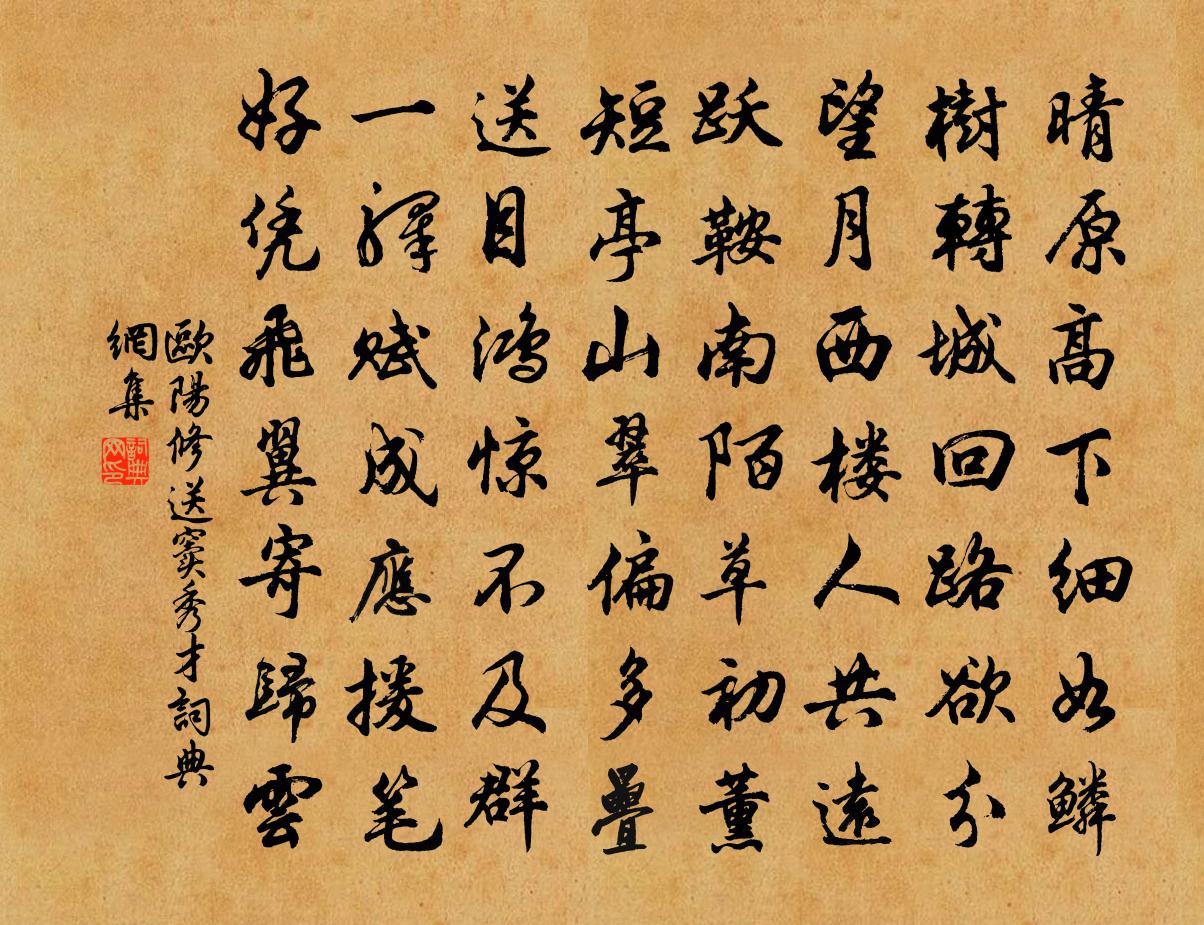 晴原高下细如鳞
樹轉城回路欲分
望月西楼人共遠
跃鞍南陌草初薰
短亭山翠偏多疊
送目鸿惊不及群
一驿赋成應援笔
好凭飛翼寄歸雲
歐陽修送窦秀才詞典
網集
詞典
网印